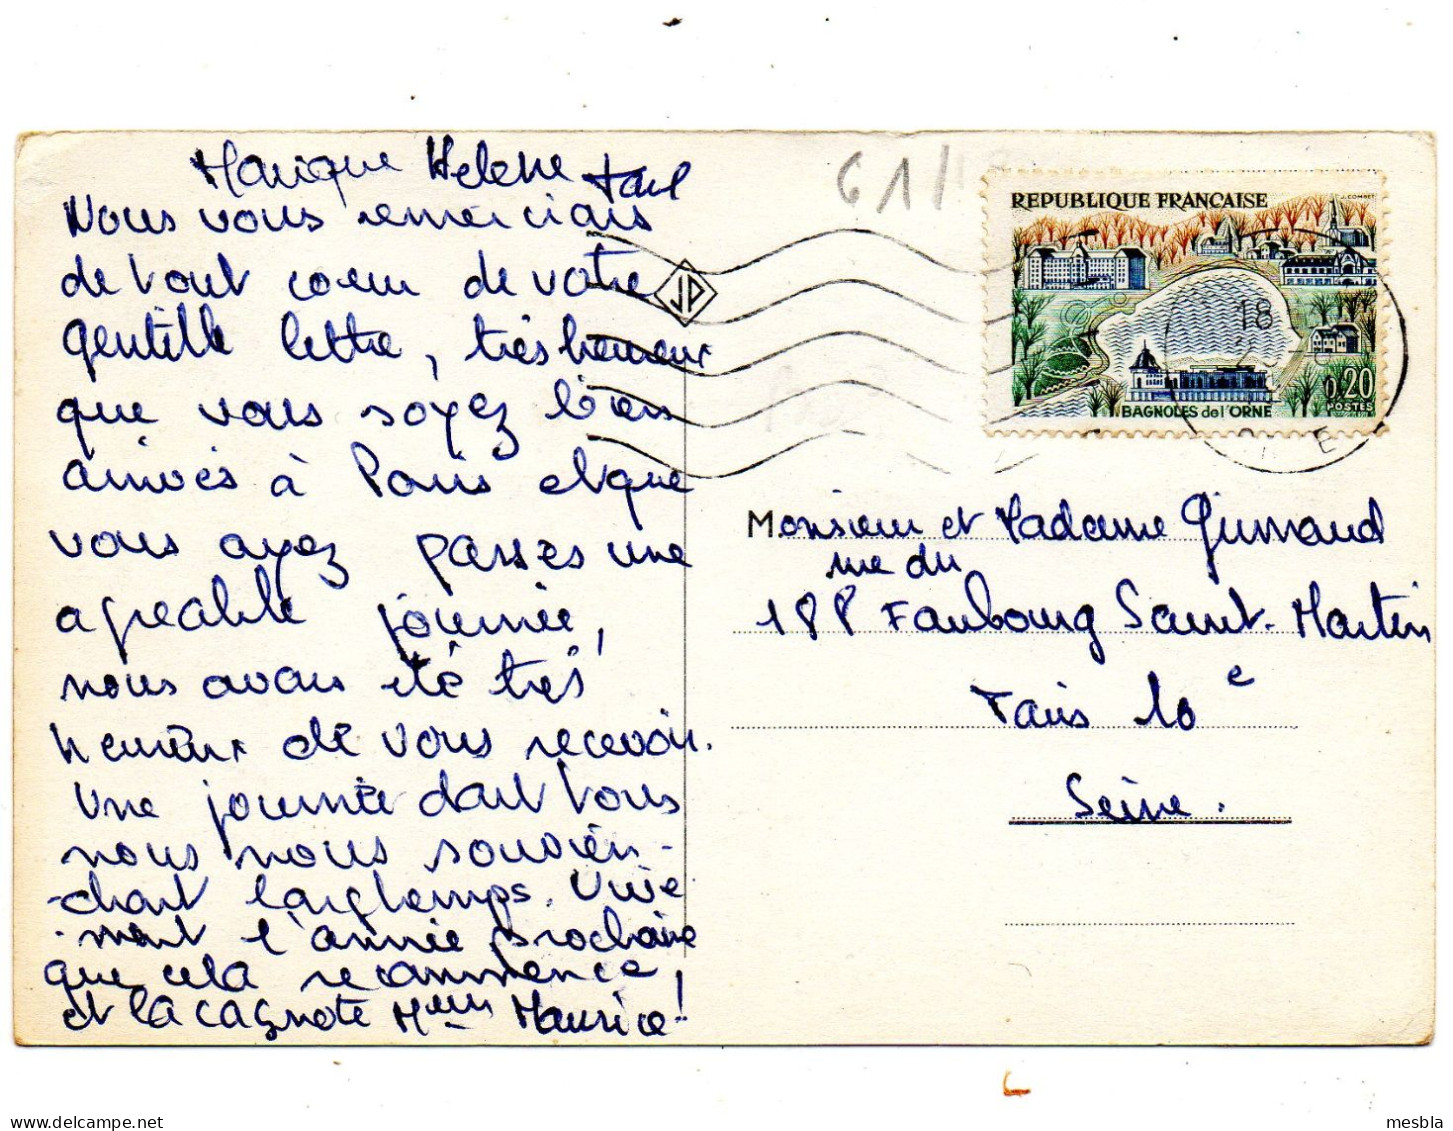 Monique Helene
Nous vous remercions
de tout coeur de votre
gentille lettre, très heureux
que vous soyez biens
arrivés à Paris et que
vous ayez passés une
agreable journée,
nous avons été très
heureux de vous recevoir.
Une journée dont vous
nous nous souvien-
-dront longtemps. Vive-
-ment l'année prochaine
que cela recommence
et la cagnote Maurice!
61/
JP
REPUBLIQUE FRANÇAISE
COMBET
18
0,20
POSTES
BAGNOLES de l'ORNE
E
Monsieur et Madame
rue du
188 Faubourg Saint-Martin
Paris 10e
Seine.
delcampe.net
mesbla